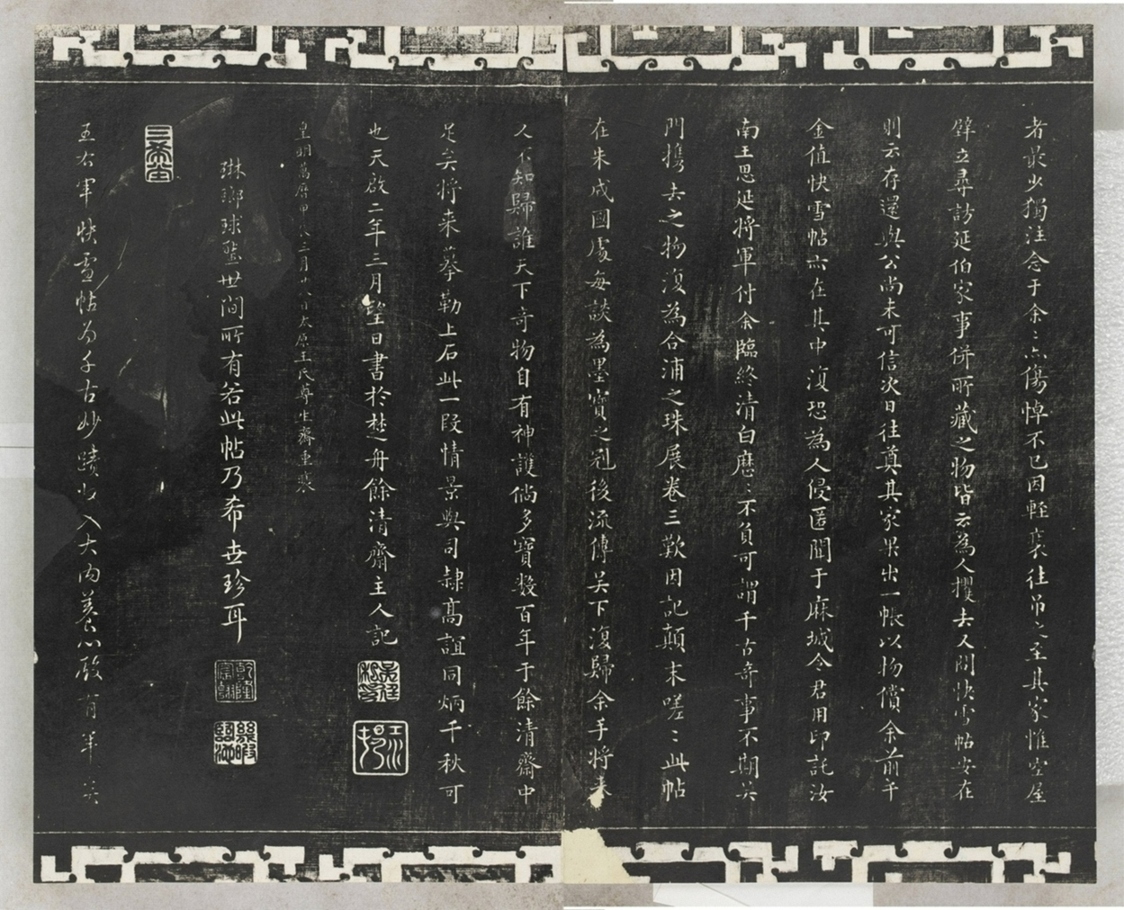 者最少獨注念于余〻亦傷悼不已因輕裘往吊之至其家惟空屋
壁立尋訪延伯家事併所藏之物皆云為人攫去入問快雪帖安在
則云存還與公尚未可信次日往奠其家果出一帳以物償余前年
金值快雪帖亦在其中復恐為人侵匿聞于麻城令君用印託汝
南王思延將軍付余臨終清白歷〻不負可謂千古奇事不期英
門攜去之物復為合浦之珠展卷三歎因記顛末嗟〻此帖
在朱成國處每談為墨寶之冠後流傳吳下復歸余手將來
人不知歸誰天下奇物自有神護倘多寶數百年于餘清齋中
足矣將來摹勒上石此一段情景與司隸高誼同炳千秋可
也天啟二年三月望日書於楚舟餘清齋主人記
皇明萬曆甲辰三月太原王氏尊生齋重裝
琳瑯球璧世間所有若此帖乃希世珍耳
三希堂
王右軍快雪帖為千古妙蹟也入大內養心殿有年矣